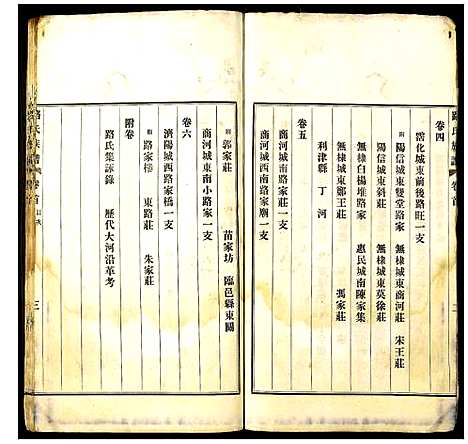 路氏族譜 卷首 二
卷四
霑化城東前後路旺一支
附 陽信城東雙堂路家 無棣城東商河莊 宋王莊
陽信城東斜莊 無棣城東莫徐莊
無棣城東臼楊埕路家 惠民城南陳家集
無棣城東鄭王莊 馮家莊
利津縣 丁河
卷五
商河城西南路家廟一支
商河城東南小路家一支
附 郭家莊 苗家坊 臨邑縣東關
卷六
濟陽城西路家橋一支
附 路家樓 東路莊 朱家莊
附卷
路氏集詠錄 歷代大河沿革考
路氏族譜 卷首 目次 三